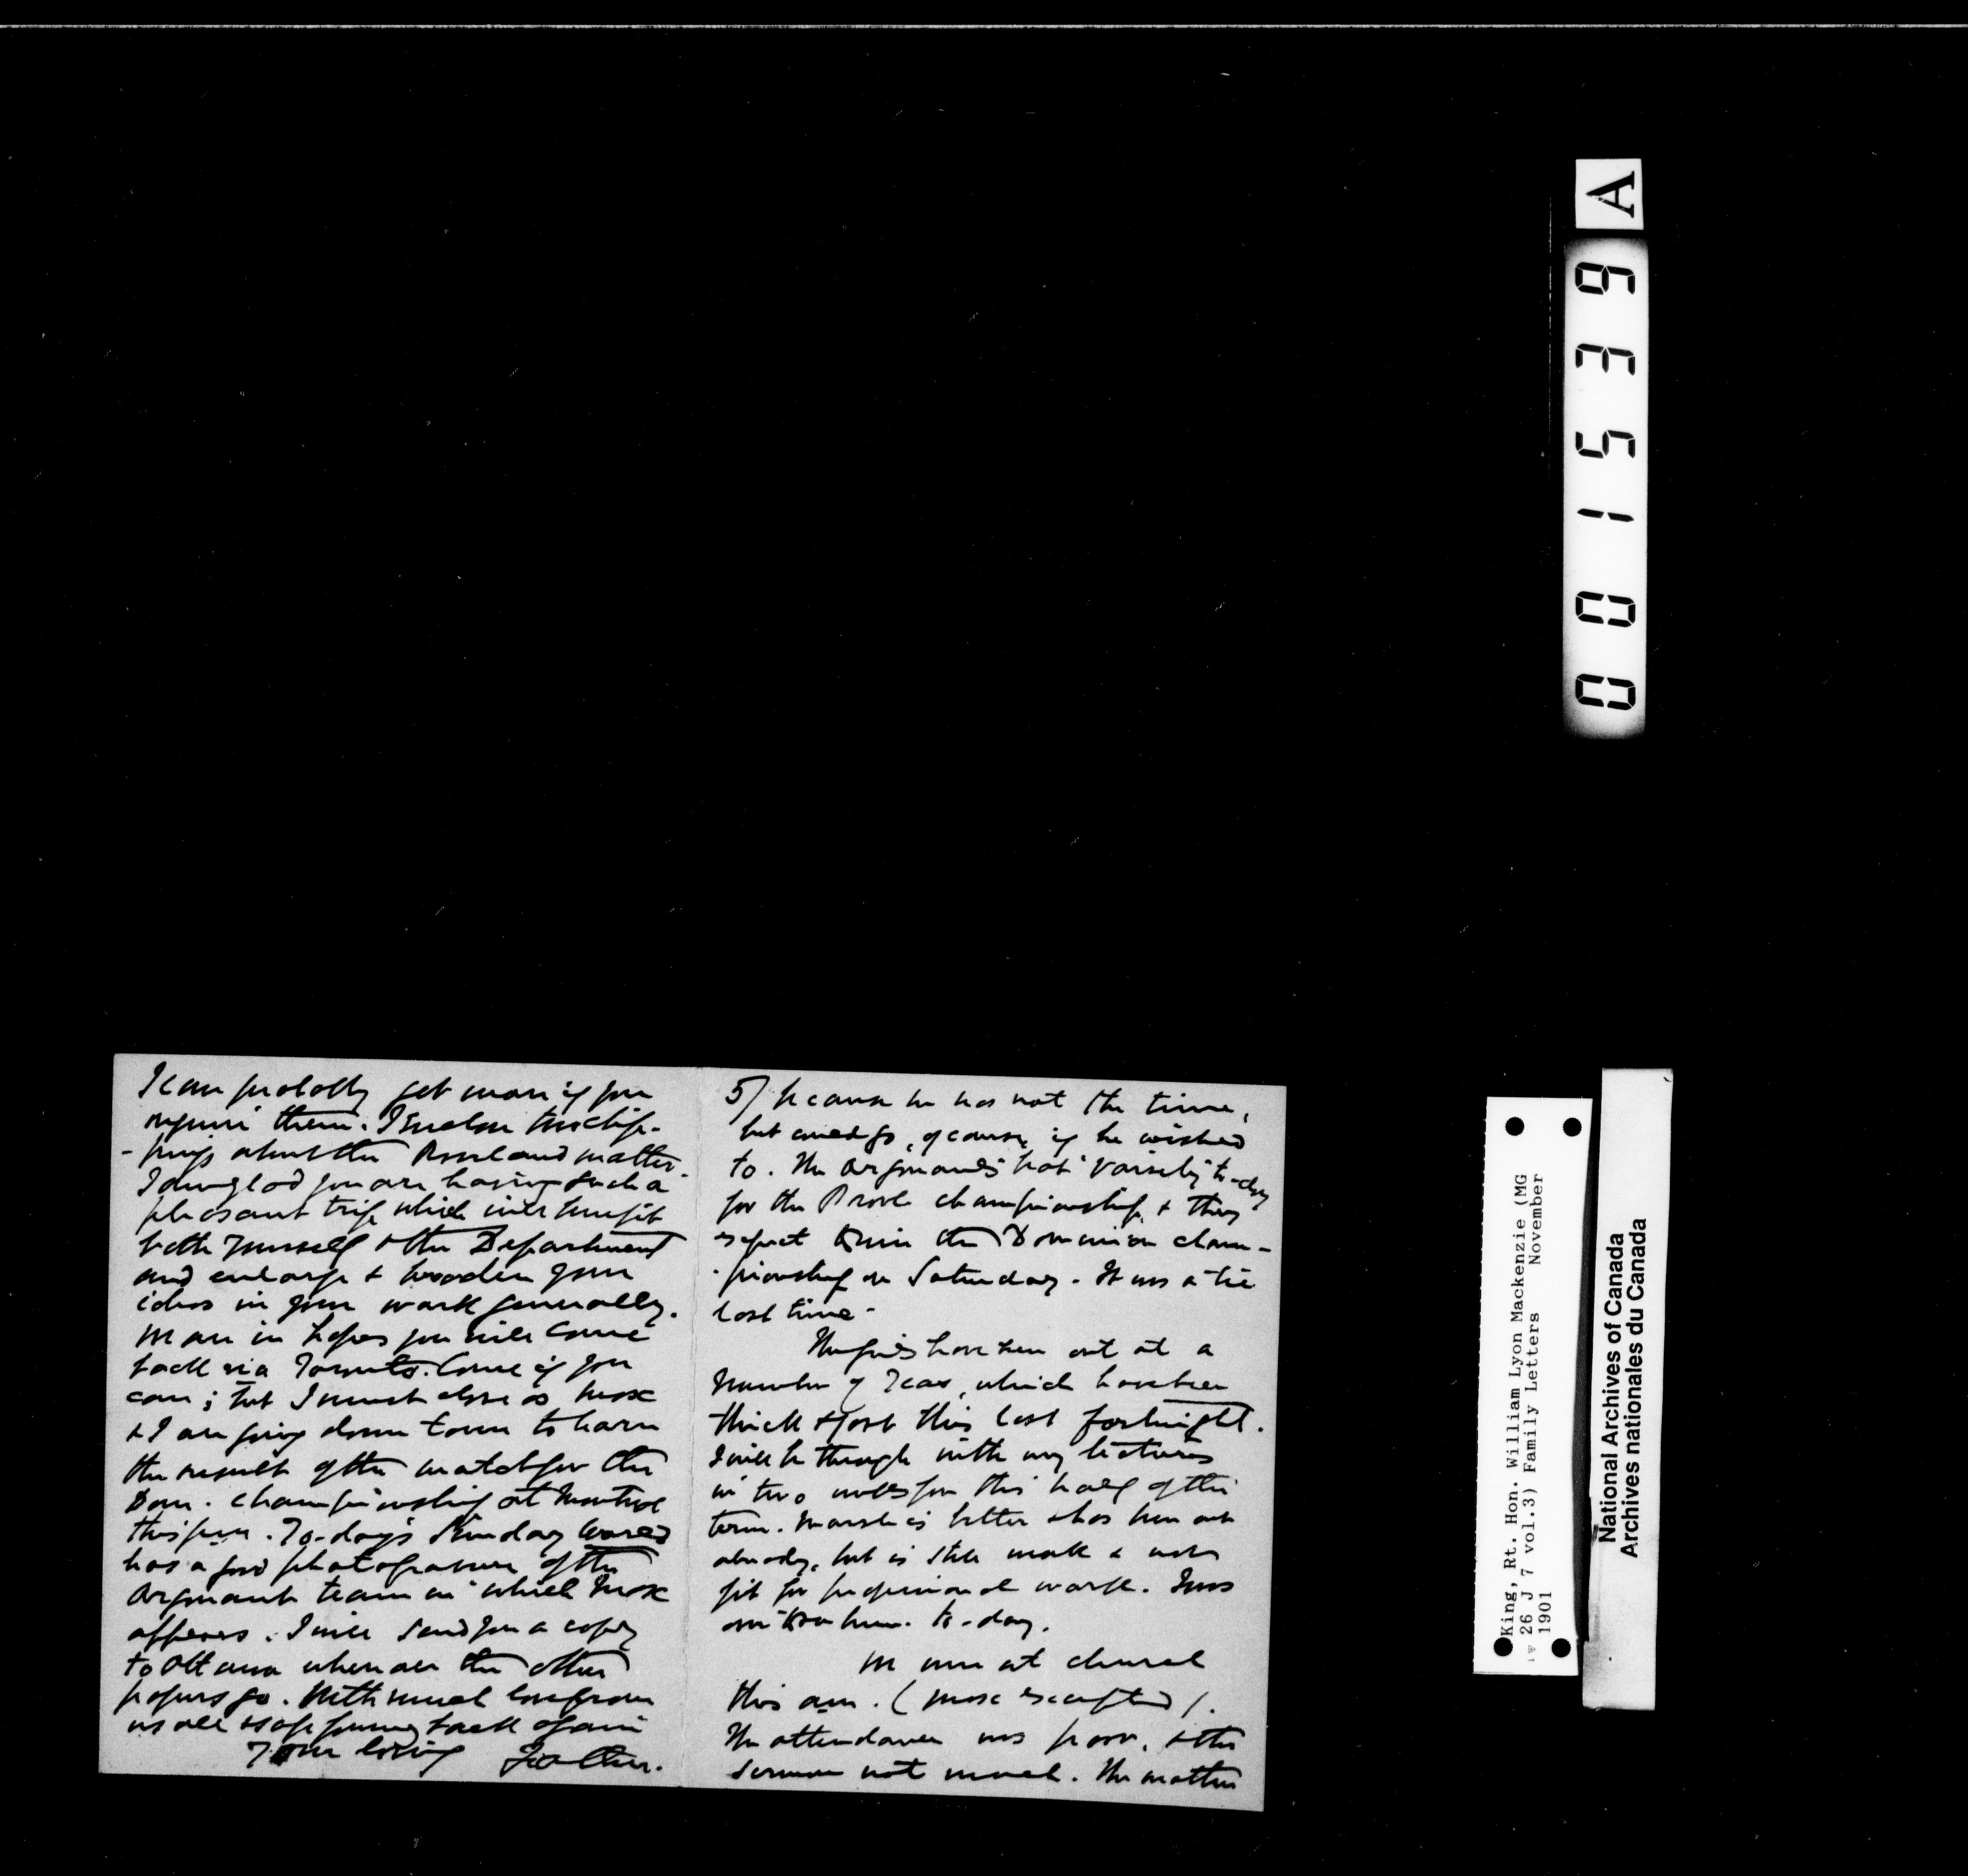 I can probably get more if you
require them. I enclose two clip-
-pings about the Rossland matter.
I am glad you are having such a
pleasant trip which will benefit
both yourself & the Department
and enlarge & broaden your
ideas in your work generally.
We are in hopes you will come
back via Toronto. Come if you
can; but I must close as Max
& I are going down town to learn
the result of the match for the
Dom. championship at Montreal
this p.m. To-day's Sunday World
has a good photogravure of the
Argonaut team in which Max
appears. I will send you a copy
to Ottawa when all the other
papers go. With much love from
us all & hope for you back again
Your loving Father.
5) because he has not the time,
but could go, of course, if he wished
to. The Argonauts beat Varsity to-day
for the Prov'l championship, & they
expect to win the Dominion cham-
-pionship on Saturday. It was a tie
last time.
The girls have been out at a
number of Teas, which have been
thick & fast this last fortnight.
I will be through with my lectures
in two weeks for this half of the
term. Marsh is better & has been out
already, but is still weak & not
fit for professional work. I was
over to see him to-day.
We were at church
this a.m. (Max excepted).
The attendance was poor, & the
sermon not much. The matter
A
001539
King, Rt. Hon. William Lyon Mackenzie (MG
26 J 7 vol.3) Family Letters November
1901
National Archives of Canada
Archives nationales du Canada